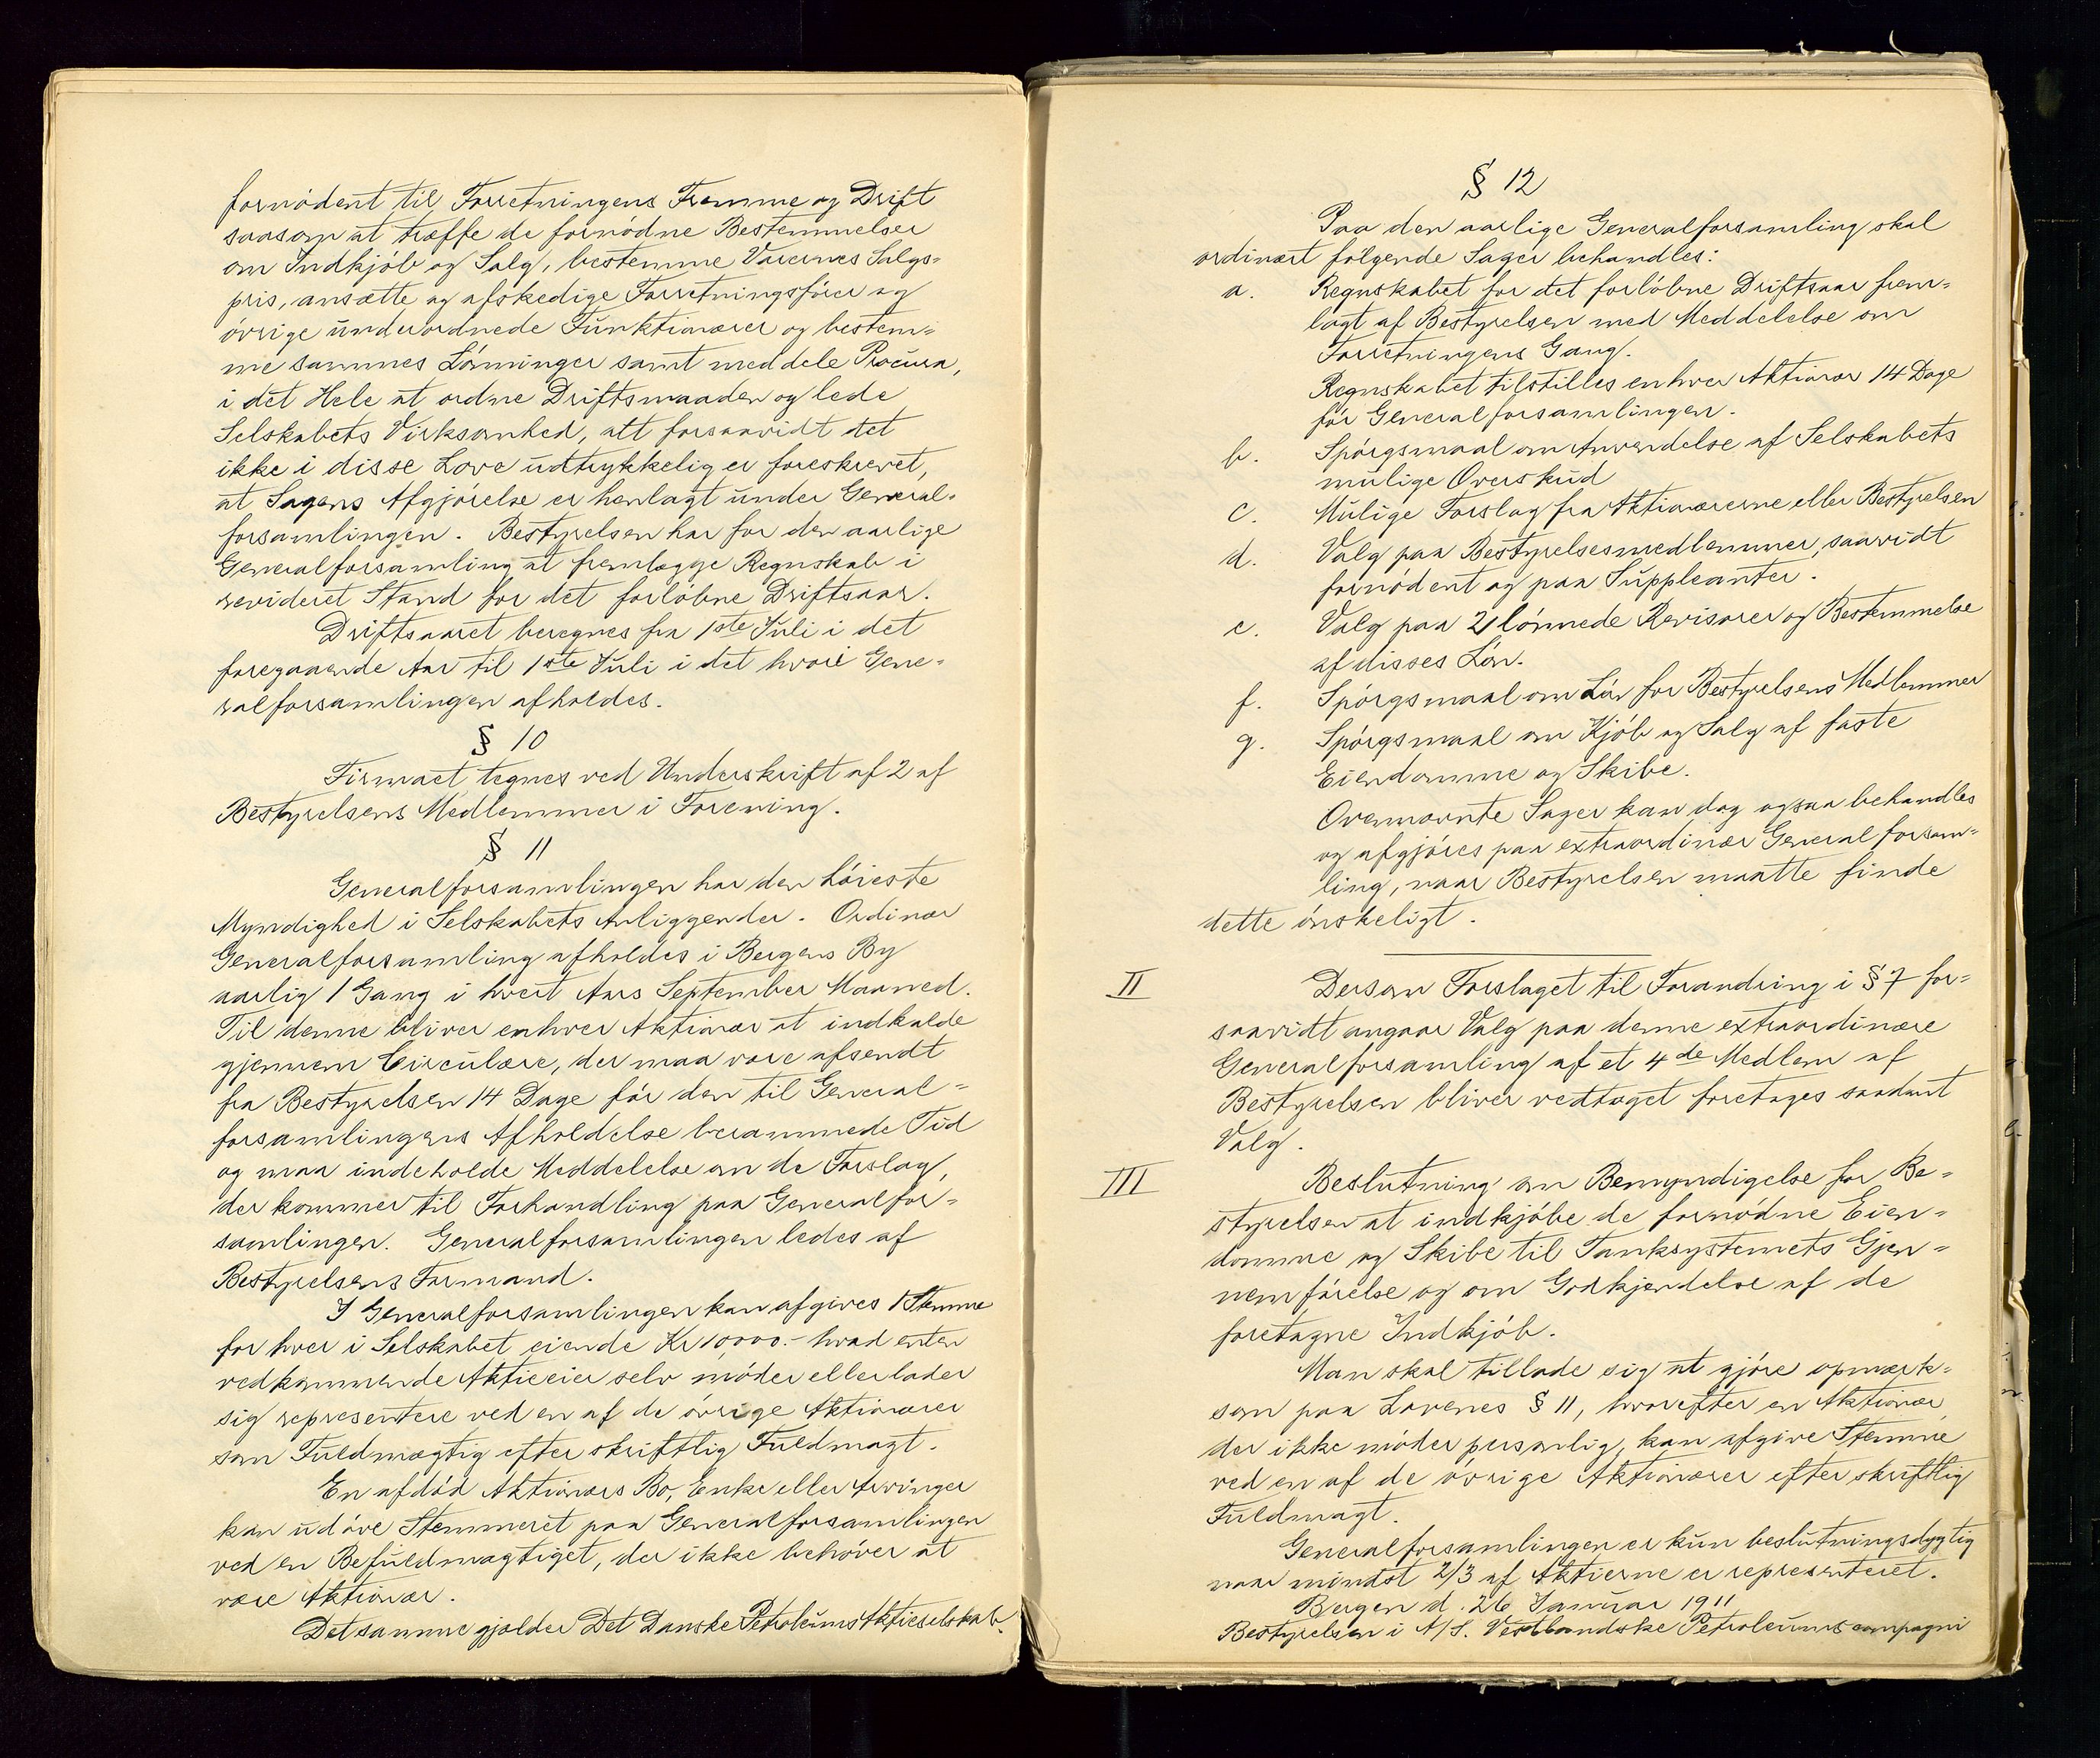 fornödent til Forretningens Fremme og Drift
saasom at træffe de fornödne Bestemmelser
om Indkjöb og Salg, bestemme Varernes Salgs=
pris, ansætte og afskedige Forretningsförer og
övrige underordnede Funktionærer og bestem=
me sammes Lönninger samt meddele Procura,
i det Hele at ordne Driftsmaaden og lede
Selskabets Virksomhed, alt forsaavidt det
ikke i disse Love udtrykkelig er foreskrevet,
at Sagens Afgjörelse er henlagt under General=
forsamlingen. Bestyrelsen har for den aarlige
Generalforsamling at fremlægge Regnskab i
revideret Stand for det forlöbne Driftsaar.
Driftsaaret beregnes fra 1ste Juli i det
foregaaende Aar til 1ste Juli i det hvori Gene=
ralforsamlingen afholdes.
§ 10
Firmaet tegnes ved Underskrift af 2 af
Bestyrelsens Medlemmer i Forening.
§ 11
Generalforsamlingen har den höieste
Myndighed i Selskabets Anliggender. Ordinær
Generalforsamling afholdes i Bergens By
aarlig 1 Gang i hvert Aars September Maaned.
Til denne bliver enhver Aktionær at indkalde
gjennem Circulære, der maa være afsendt
fra Bestyrelsen 14 Dage för den til General=
forsamlingens Afholdelse berammede Tid
og maa indeholde Meddelelse om de Forslag,
der kommer til Forhandling paa Generalfor=
samlingen. Generalforsamlingen ledes af
Bestyrelsens Formand.
I Generalforsamlingen kan afgives 1 Stemme
for hver i Selskabet eiende Kr 10,000.- hvad enten
vedkommende Aktieeier selv möder eller lader
sig representere ved en af de övrige Aktionærer
som Fuldmægtig efter skriftlig Fuldmagt.
En afdöd Aktionærs Bo, Enke eller Arvinger
kan udöve Stemmeret paa Generalforsamlingen
ved en Befuldmægtiget, der ikke behöver at
være Aktionær.
Det samme gjælder Det Danske Petroleums Aktieselskab.
§ 12
Paa den aarlige Generalforsamling skal
ordinært fölgende Sager behandles:
a. Regnskabet for det forlöbne Driftsaar frem=
lagt af Bestyrelsen med Meddelelse om
Forretningens Gang.
Regnskabet tilstilles enhver Aktionær 14 Dage
för Generalforsamlingen.
b. Spörgsmaal om Anvendelse af Selskabets
mulige Overskud
c. Mulige Forslag fra Aktionærerne eller Bestyrelsen
d. Valg paa Bestyrelsesmedlemmer, saavidt
fornödent og paa Suppleanter.
e. Valg paa 2 lönnede Revisorer og Bestemmelse
af disses Lön.
f. Spörgsmaal om Lön for Bestyrelsens Medlemmer
g. Spörgsmaal om Kjöb og Salg af faste
Eiendomme og Skibe.
Ovennævnte Sager kan dog ogsaa behandles
og afgjöres paa extraordinær Generalforsam=
ling, naar Bestyrelsen maatte finde
dette önskeligt.
II Dersom Forslaget til Forandring i § 7 for=
saavidt angaar Valg paa denne extraordinære
Generalforsamling af et 4de Medlem af
Bestyrelsen bliver vedtaget foretages saadant
Valg.
III Beslutning om Bemyndigelse for Be=
styrelsen at indkjöbe de fornödne Eien=
domme og Skibe til Tanksystemets Gjen=
nemförelse og om Godkjendelse af de
foretagne Indkjöb.
Man skal tillade sig at gjöre opmærk=
som paa Lovenes § 11, hvorefter en Aktionær
der ikke möder personlig, kan afgive Stemme
ved en af de övrige Aktionærer efter skriftlig
Fuldmagt.
Generalforsamlingen er kun beslutningsdygtig
naar mindst 2/3 af Aktierne er representeret.
Bergen d. 26 Januar 1911
Bestyrelsen i A/S. Vestlandske Petroleumscompagni